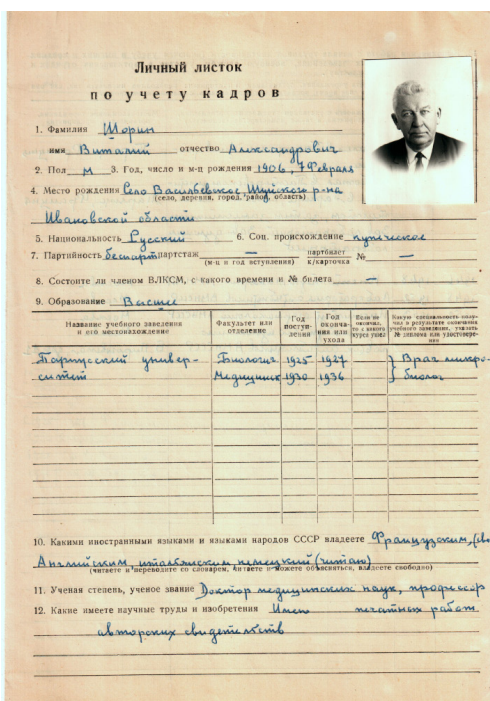 Личный листок
по учету кадров
1. Фамилия Шорин
имя Виталий отчество Александрович
2. Пол м 3. Год, число и м-ц рождения 1906, 7 Февраля
4. Место рождения Село Васильевское Шуйского р-на
(село, деревня, город, район, область)
Ивановской области
5. Национальность Русский 6. Соц. происхождение купеческое
7. Партийность беспарт партстаж — партбилет к/карточка № —
(м-ц и год вступления)
8. Состоите ли членом ВЛКСМ, с какого времени и № билета —
9. Образование Высшее
Название учебного заведения и его местонахождение Факультет или отделение Год поступления Год окончания или ухода Если не окончил, то с какого курса ушел Какую специальность получил в результате окончания учебного заведения, указать № диплома или удостоверения
Тартусский универ- Биологич. 1925 1927 } Врач микро-
ситет Медицинск 1930 1936 } биолог
10. Какими иностранными языками и языками народов СССР владеете Французским,
Английским, итальянским немецкий (читаю)
(читаете и переводите со словарем, читаете и можете объясняться, владеете свободно)
11. Ученая степень, ученое звание Доктор медицинских наук, профессор
12. Какие имеете научные труды и изобретения Имею печатных работ
авторских свидетельств